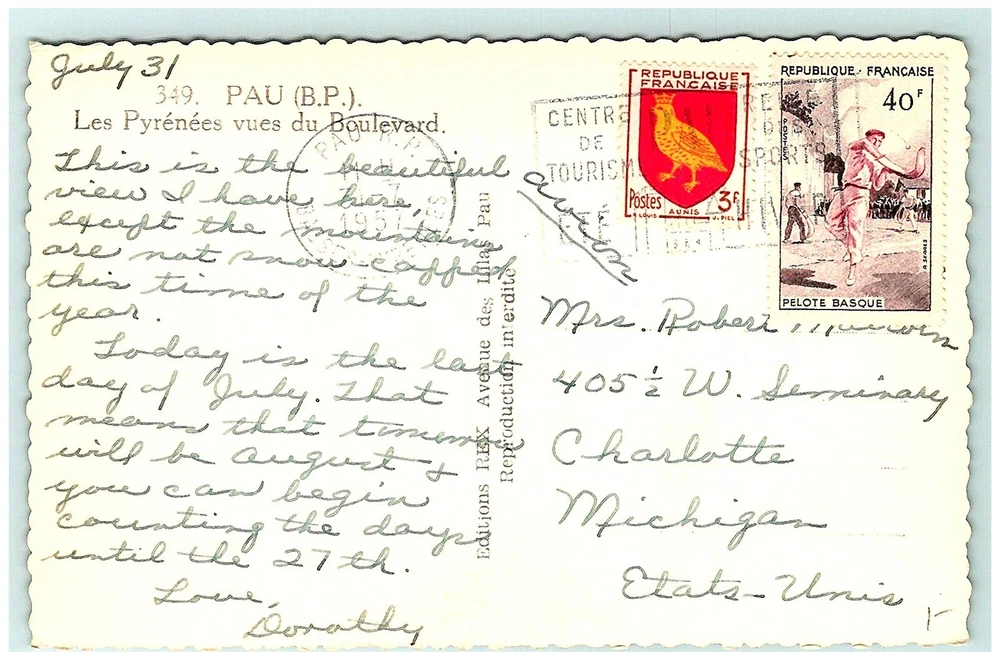 July 31
349. PAU (B.P.).
Les Pyrénées vues du Boulevard.
This is the beautiful
view I have here,
except the mountains
are not snow-capped
this time of the
year.
Today is the last
day of July. That
means that tomorrow
will be August &
you can begin
counting the days
until the 27th.
Love,
Dorothy
Editions REX Avenue des Lilas Pau
Reproduction interdite
PAU R.P.
CENTRE
DE
TOURISME
SPORTS
ÉTÉ
REPUBLIQUE
FRANÇAISE
Postes 3F
AUNIS
R. LOUIS J. PIEL
REPUBLIQUE - FRANÇAISE
40F
POSTES
PELOTE BASQUE
avion
Mrs. Robert
405 ½ W. Seminary
Charlotte
Michigan
Etats-Unis